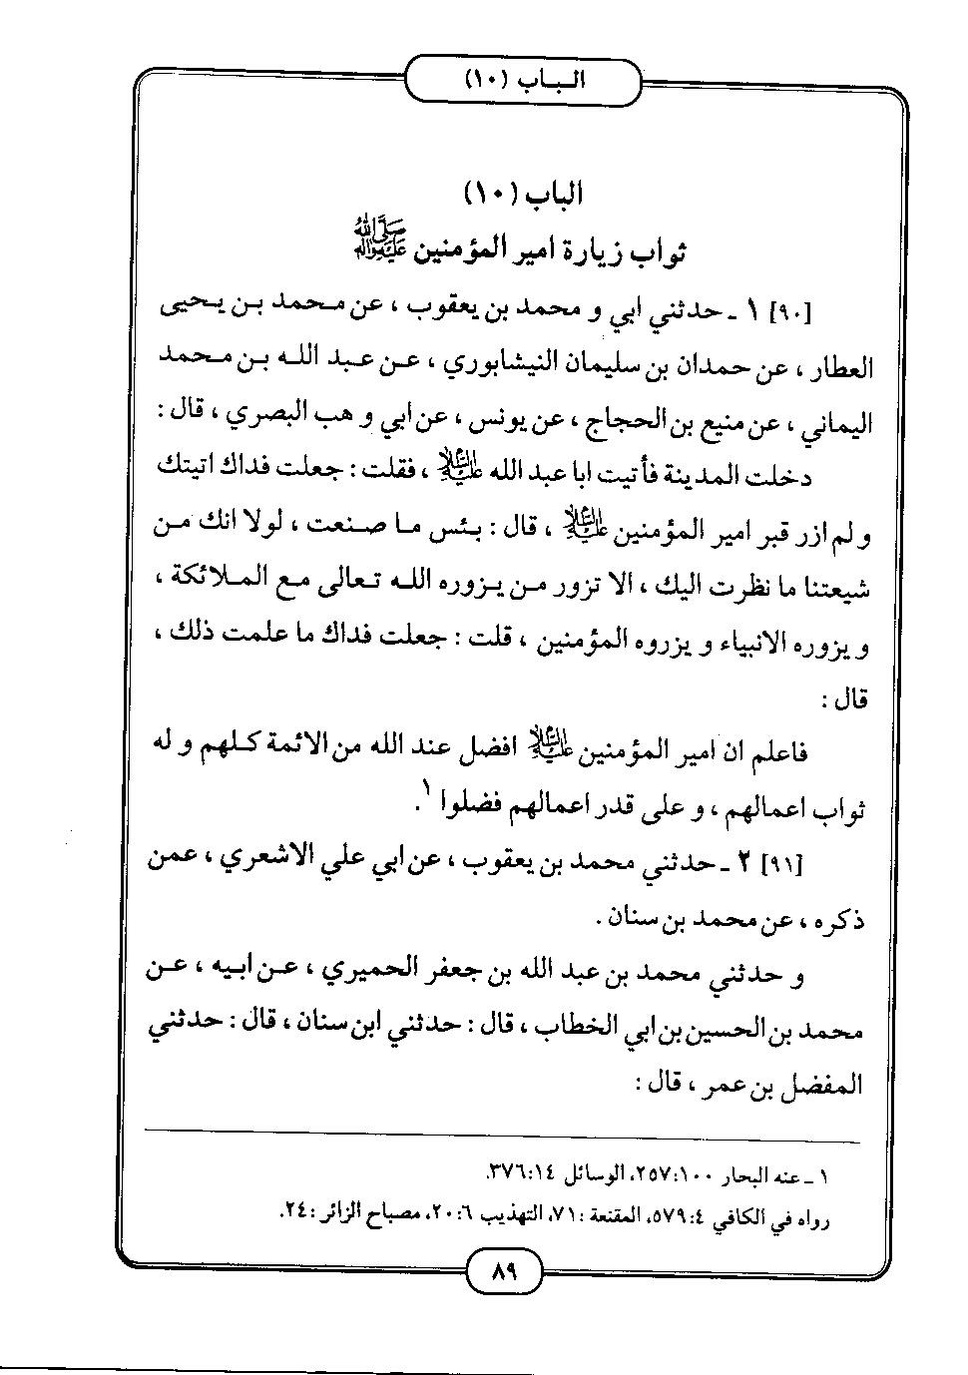 الباب (١٠)
الباب (١٠)
ثواب زيارة امير المؤمنين صلى الله عليه وآله
[٩٠] ١ ـ حدثني ابي و محمد بن يعقوب ، عن محمد بن يحيى
العطار ، عن حمدان بن سليمان النيشابوري ، عن عبد الله بن محمد
اليماني ، عن منيع بن الحجاج ، عن يونس ، عن ابي و هب البصري ، قال :
دخلت المدينة فأتيت ابا عبد الله عليه السلام ، فقلت : جعلت فداك اتيتك
و لم ازر قبر امير المؤمنين عليه السلام ، قال : بئس ما صنعت ، لولا انك من
شيعتنا ما نظرت اليك ، الا تزور من يزوره الله تعالى مع الملائكة ،
و يزوره الانبياء و يزروه المؤمنين ، قلت : جعلت فداك ما علمت ذلك ،
قال :
فاعلم ان امير المؤمنين عليه السلام افضل عند الله من الائمة كلهم و له
ثواب اعمالهم ، و على قدر اعمالهم فضلوا ١.
[٩١] ٢ ـ حدثني محمد بن يعقوب ، عن ابي علي الاشعري ، عمن
ذكره ، عن محمد بن سنان .
و حدثني محمد بن عبد الله بن جعفر الحميري ، عن ابيه ، عن
محمد بن الحسين بن ابي الخطاب ، قال : حدثني ابن سنان ، قال : حدثني
المفضل بن عمر ، قال :
١ ـ عنه البحار ١٠٠:٢٥٧، الوسائل ١٤:٣٧٦.
رواه في الكافي ٤:٥٧٩، المقنعة :٧١، التهذيب ٦:٢٠، مصباح الزائر :٢٤.
٨٩